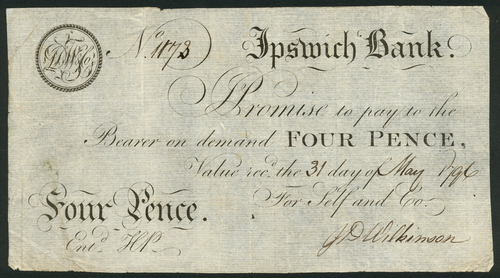 No. 1173 Ipswich Bank.
I Promise to pay to the
Bearer on demand FOUR PENCE,
Value recd. the 31 day of May 1796
Four Pence. For Self and Co.
Entd. HP. JDWilkinson